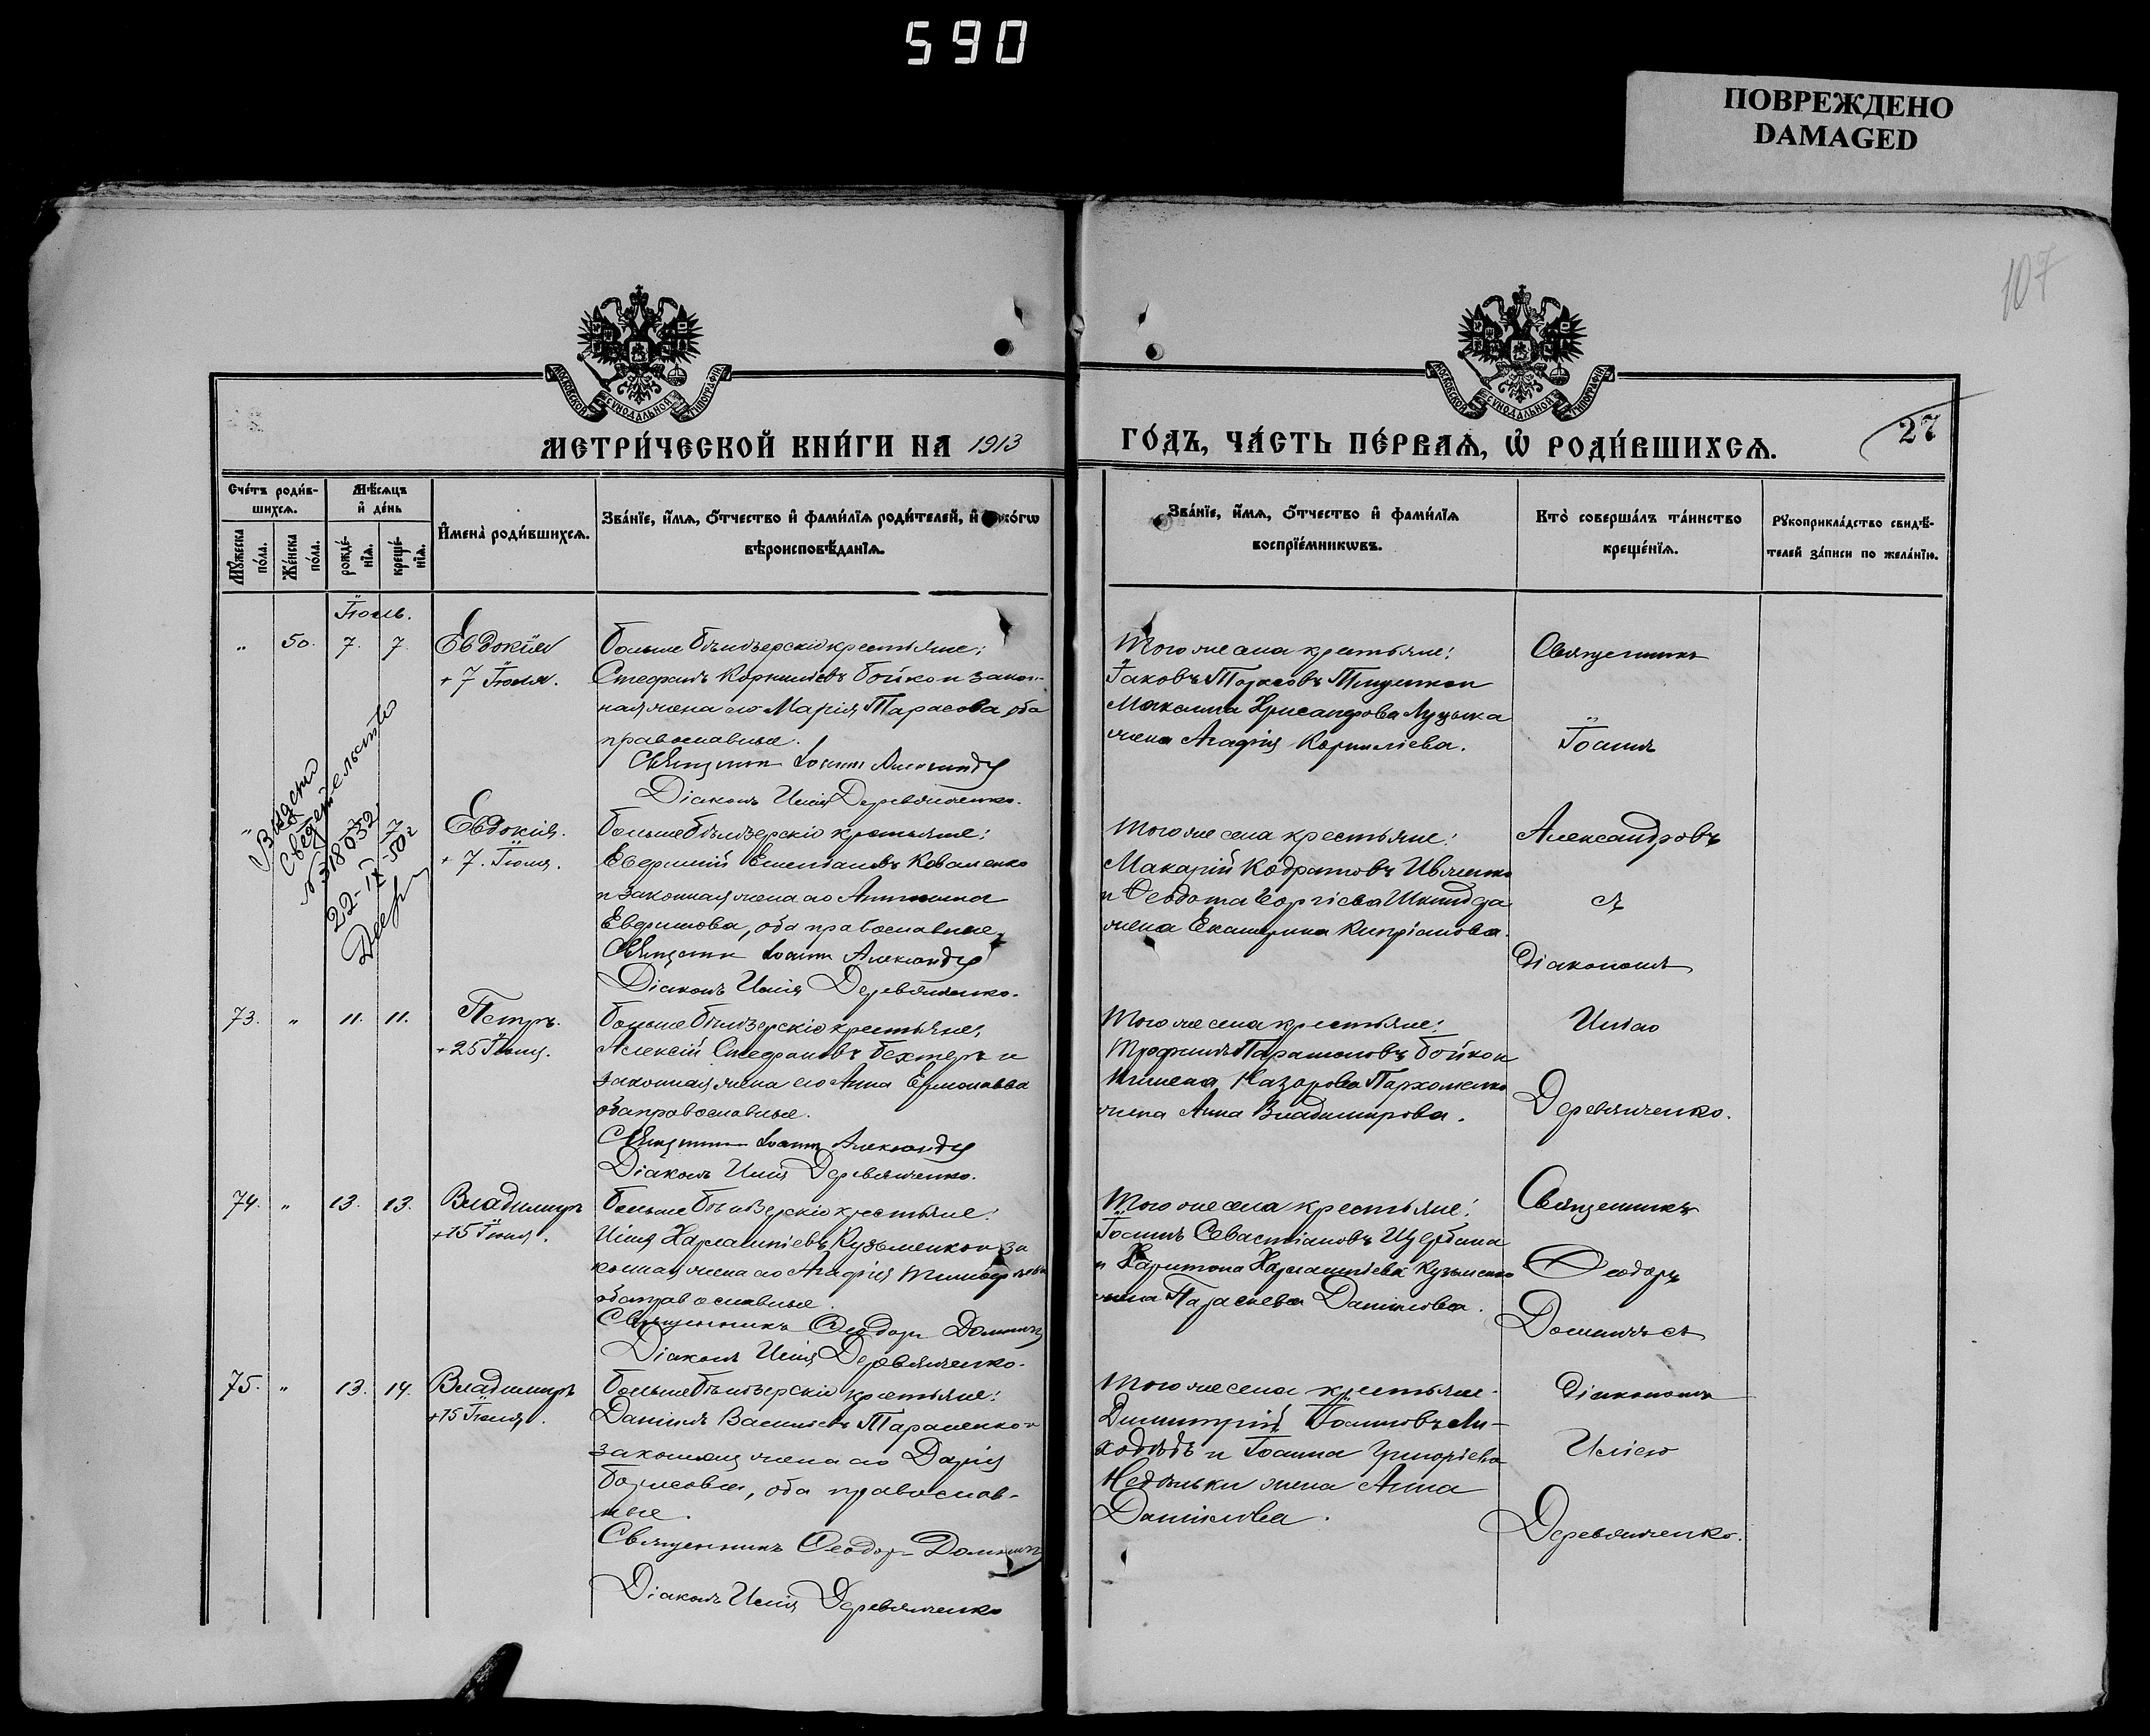 590
ПОВРЕЖДЕНО
DAMAGED
107
МЕТРИ́ЧЕСКОЙ КНИ́ГИ НА 1913
ГО́ДЪ, ЧА́СТЬ ПЕ́РВАѦ, Ѡ҆ РОДИ́ВШИХСѦ.
27
Сче́тъ роди́в-
шихсѧ.
Мѣ́сѧцъ
и҆ де́нь
Му́жеска по́ла.
Же́нска по́ла.
рожде́-
нїѧ.
креще́-
нїѧ.
И҆мена̀ роди́вшихсѧ.
Зва́нїе, и҆́мѧ, ѻ҆́тчество и҆ фами́лїѧ роди́телей, и҆ ко́гѡ
вѣроисповѣ́данїѧ.
Зва́нїе, и҆́мѧ, ѻ҆́тчество и҆ фами́лїѧ
воспрїе́мникѡвъ.
Кто̀ соверша́лъ та́инство
креще́нїѧ.
Рꙋкоприкла́дство свидѣ́-
телей за́писи по жела́нїю.
Іюль.
" 50. 7. 7. Евдокія
+ 7 Іюля.
Больше Бѣлозерскіе крестьяне:
Стефанъ Корниліевъ Бойко и закон-
ная жена его Марія Тарасова, оба
православные.
Священникъ Іоаннъ Александр
Діаконъ Илія Деревянченко.
Того же села крестьяне:
Іаковъ Тарасовъ Тищенко и
Максима Хрисанфова Луцыка
жена Агафія Корниліева.
Священникъ
Іоаннъ
Александровъ
съ
діакономъ
Иліею
Деревянченко.
Видано
Свідетельство
№ 318032
22-IX-50 г
" 7 Евдокія.
+ 7. Іюля.
Больше Бѣлозерскіе крестьяне:
Евфимій Емеліановъ Коваленко
и законная жена его Антонина
Евфимова, оба православные.
Священникъ Іоаннъ Александр
Діаконъ Илія Деревянченко.
Того же села крестьяне:
Макарій Кодратовъ Ивченко
и Феодота Георгіева Шкинда
жена Екатерина Кипріанова.
73. " 11. 11. Петръ.
+ 25 Іюля.
Больше Бѣлозерскіе крестьяне:
Алексій Стефановъ Бехтеръ и
законная жена его Анна Ермолаева
оба православные.
Священникъ Іоаннъ Александр
Діаконъ Илія Деревянченко.
Того же села крестьяне:
Трофимъ Парамоновъ Бойко и
Назарова Пархоменко
жена Анна Владимирова.
74. " 13. 13. Владимиръ
+ 15 Іюля.
Больше Бѣлозерскіе крестьяне:
Илія Харлампіевъ Кузьменко и за
конная жена его Агафія
оба православные.
Священникъ Феодоръ Доминъ
Діаконъ Илія Деревянченко.
Того же села крестьяне:
Іоаннъ Севастіановъ Щербина
и Харитона Харлампіева Кузьменко
жена Параскева Даниилова.
Священникъ
Феодоръ
Доминъ съ
діакономъ
Иліею
Деревянченко.
75. " 13. 14. Владимиръ
+ 15 Іюля.
Больше Бѣлозерскіе крестьяне:
Даніилъ Васильевъ Тараненко и
законная жена его Дарія
Борисова, оба православ-
ные.
Священникъ Феодоръ Доминъ
Діаконъ Илія Деревянченко
Того же села крестьяне:
Димитрій Іоанновъ Ли-
ходѣдъ и Іоанна Григоріева
Недѣльки жена Анна
Даниилова.